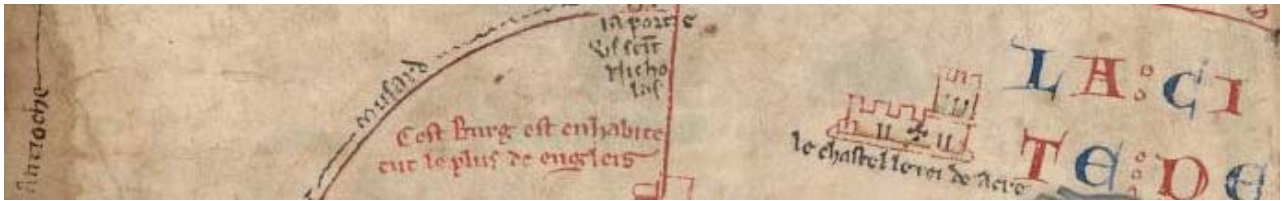 Antioche
musard
la porte
vſ ſeīt
Nicho
las
Cest Burg est enhabite
eut le plus de engleis
le chastel le roi de Acre
LA:CI
TE:DE